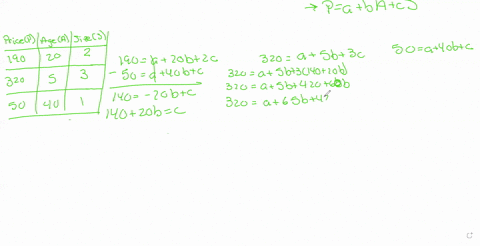 → P=a+bA+cS
Price(P) Age(A) Size(S)
190 20 2
320 5 3
50 40 1
190=a+20b+2c
-50=a+40b+c
140=-20b+c
140+20b=c
320=a+5b+3c
320=a+5b+3(140+20b)
320=a+5b+420+60b
320=a+65b+42
50=a+40b+c